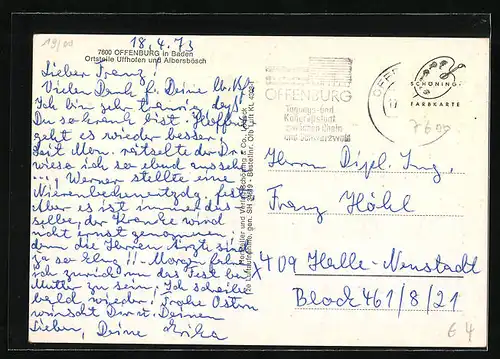 19/00
18.4.73
7600 OFFENBURG in Baden
Ortsteile Uffhofen und Albersbösch
Lieber Franz!
Vielen Dank f. Deine
Ich bin sehr traurig, daß
Du so krank bist. Hoffentl.
geht es wieder besser!
Seit Mon. rätselte der Dr.
wieso ich so elend aussehe
...! Werner stellte eine
fest
Aber es ist immer das-
selbe, der Kranke wird
nicht ernst genommen,
denn die Herren Ärzte sind
ja so klug!! - Morgen fahre
ich zurück um das Fest bei
Mutter zu sein. Ich schreibe
bald wieder! Frohe Ostern
wünscht Dir u. Deinen
Lieben, Deine Erika
Schöning & Co
OFFENBURG
Tagungs- und
Kongreßstadt
zwischen Rhein
und Schwarzwald
OFFE
17
SCHÖNING
FARBKARTE
7600
Herrn Dipl. Ing.
Franz Höhl
X 409 Halle-Neustadt
Block 461/8/21
€ 4